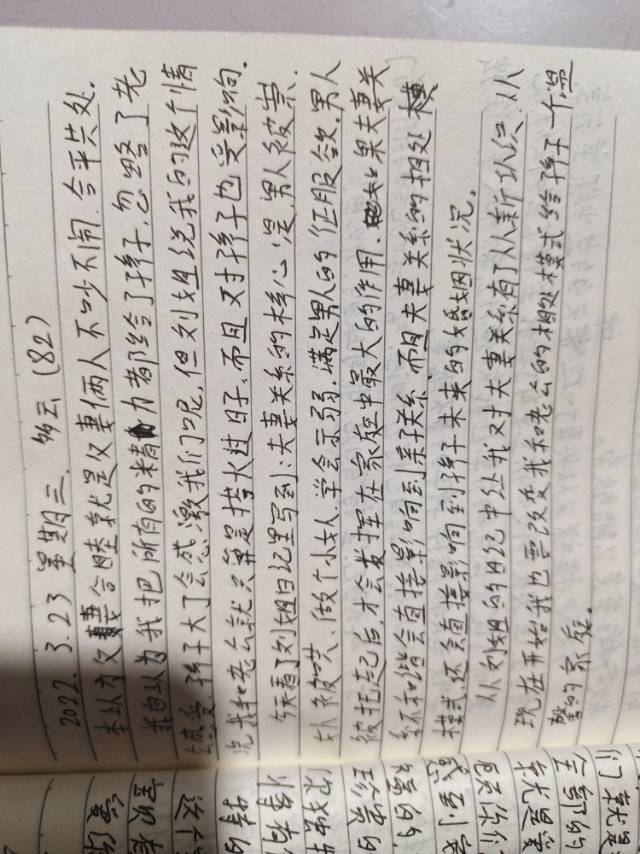 2022. 3.23 星期三. 多云 (82)
本以为夫妻合睦就是夫妻俩人不吵不闹. 合平共处.
我自认为我把所有的精力都给了孩子, 忽略了老
感受, 孩子大了会感激我们呢, 但刘姐说我的这个情
况我和老公就只算是搭火过日子. 而且对孩子也受影响.
今天看了刘姐日记里写到: 夫妻关系的核心是, 男人被崇.
女人被哄. 做个小女人. 学会示弱. 满足男人的征服欲. 男人
被托起后, 才会发挥在家庭中最大的作用. 如果夫妻关
系不和谐会直接影响到亲子关系, 而且夫妻关系的相处模
模式, 还会直接影响到孩子未来的婚姻状况.
从刘姐的日记中让我对夫妻关系有了从新认识. 从
现在开始我也要改变我和老公的相处模式给孩子一个完
整的家庭.